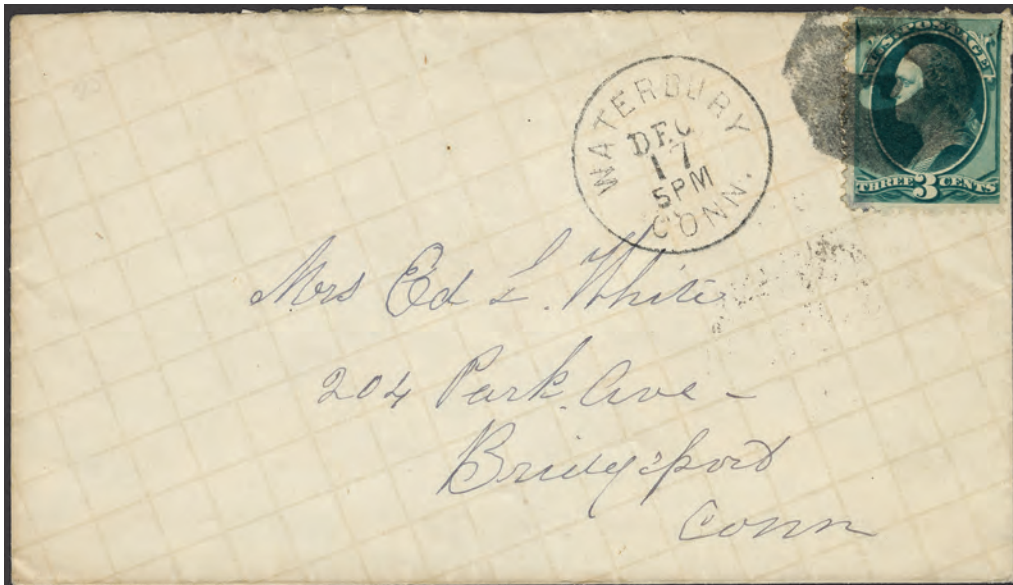 U.S. POSTAGE
THREE 3 CENTS
WATERBURY
DEC
17
5PM
CONN.
Mrs Ed L. White
204 Park Ave -
Bridgeport
Conn